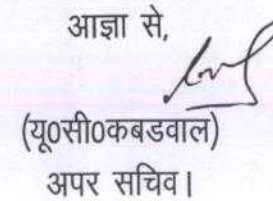 आज्ञा से,
(यू0सी0कबडवाल)
अपर सचिव।